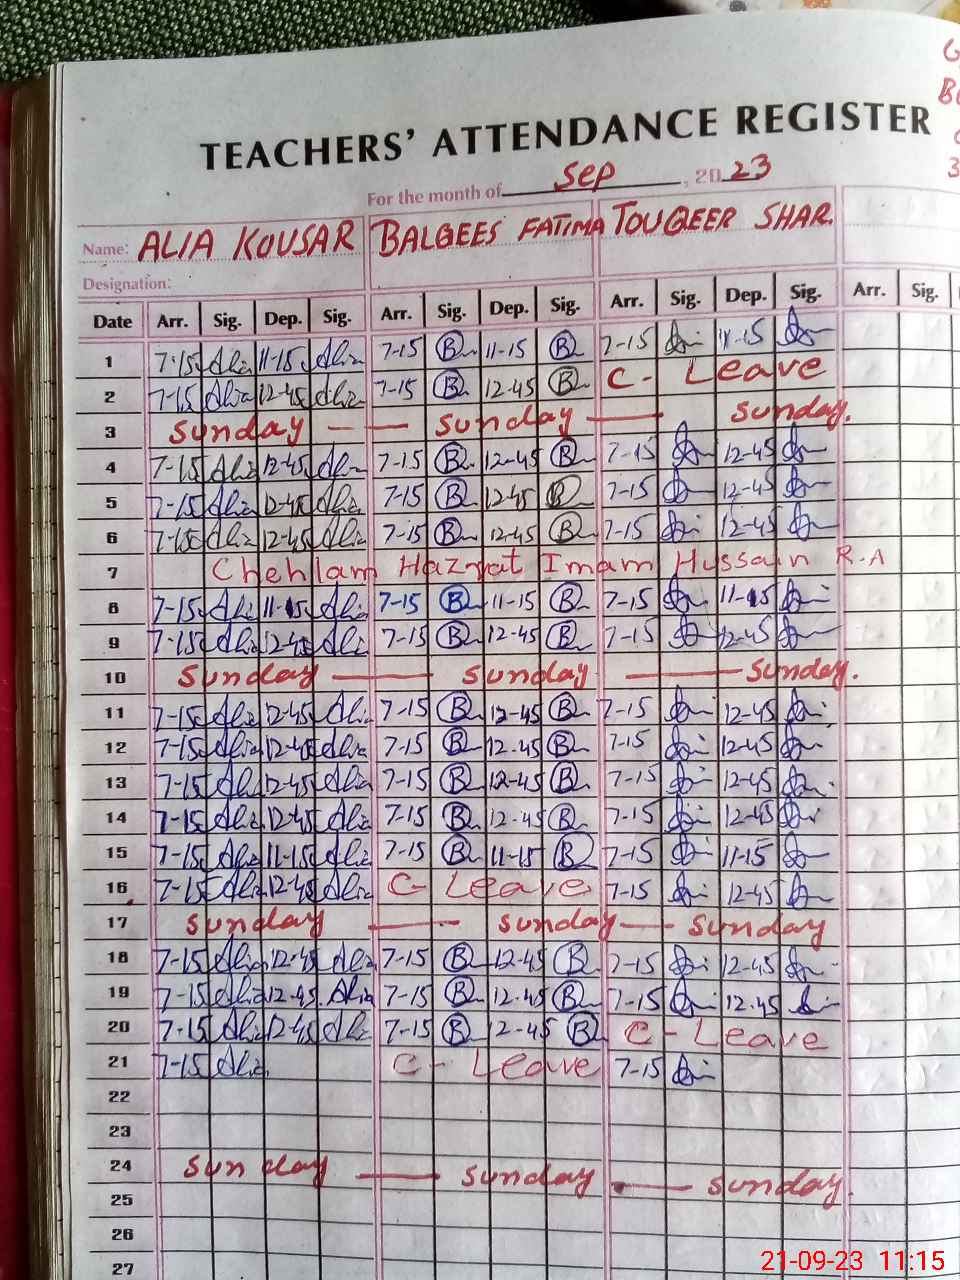 TEACHERS' ATTENDANCE REGISTER
For the month of Sep, 2023
Name: ALIA KOUSAR BALGEES FATIMA TOUQEER SHAR.
Designation:
Date Arr. Sig. Dep. Sig. Arr. Sig. Dep. Sig. Arr. Sig. Dep. Sig. Arr. Sig.
1 7-15 Alia 11-15 Alia 7-15 B 11-15 B 7-15 11-15
2 7-15 Alia 12-45 Alia 7-15 B 12-45 B C- Leave
3 Sunday — — Sunday — Sunday.
4 7-15 Alia 12-45 Alia 7-15 B 12-45 B 7-15 12-45
5 7-15 Alia 12-45 Alia 7-15 B 12-45 B 7-15 12-45
6 7-15 Alia 12-45 Alia 7-15 B 12-45 B 7-15 12-45
7 Chehlam Hazrat Imam Hussain R.A
8 7-15 Alia 11-15 Alia 7-15 B 11-15 B 7-15 11-15
9 7-15 Alia 12-45 Alia 7-15 B 12-45 B 7-15 12-45
10 Sunday — Sunday — Sunday.
11 7-15 Alia 12-45 Alia 7-15 B 12-45 B 7-15 12-45
12 7-15 Alia 12-45 Alia 7-15 B 12-45 B 7-15 12-45
13 7-15 Alia 12-45 Alia 7-15 B 12-45 B 7-15 12-45
14 7-15 Alia 12-45 Alia 7-15 B 12-45 B 7-15 12-45
15 7-15 Alia 11-15 Alia 7-15 B 11-15 B 7-15 11-15
16 7-15 Alia 12-45 Alia C- Leave 7-15 12-45
17 Sunday — Sunday — Sunday
18 7-15 Alia 12-45 Alia 7-15 B 12-45 B 7-15 12-45
19 7-15 Alia 12-45 Alia 7-15 B 12-45 B 7-15 12-45
20 7-15 Alia 12-45 Alia 7-15 B 12-45 B C- Leave
21 7-15 Alia C- Leave 7-15
22
23
24 Sunday — Sunday — Sunday.
25
26
27
21-09-23 11:15